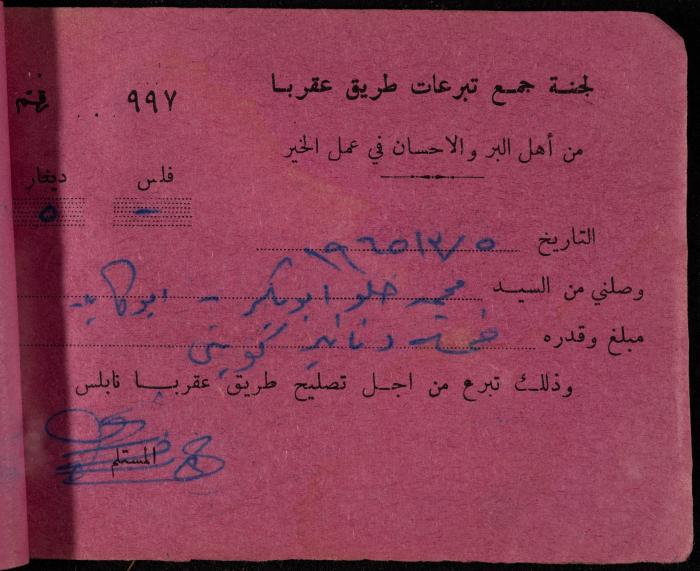 لجنة جمع تبرعات طريق عقربا
رقم ... ٩٩٧
من أهل البر والاحسان في عمل الخير
فلس دينار
— ٥
التاريخ ٥/٣/١٩٦٥
وصلني من السيد محمد حلو ابو بكر -
مبلغ وقدره خمسة دنانير كويتي
وذلك تبرع من اجل تصليح طريق عقربا نابلس
المستلم